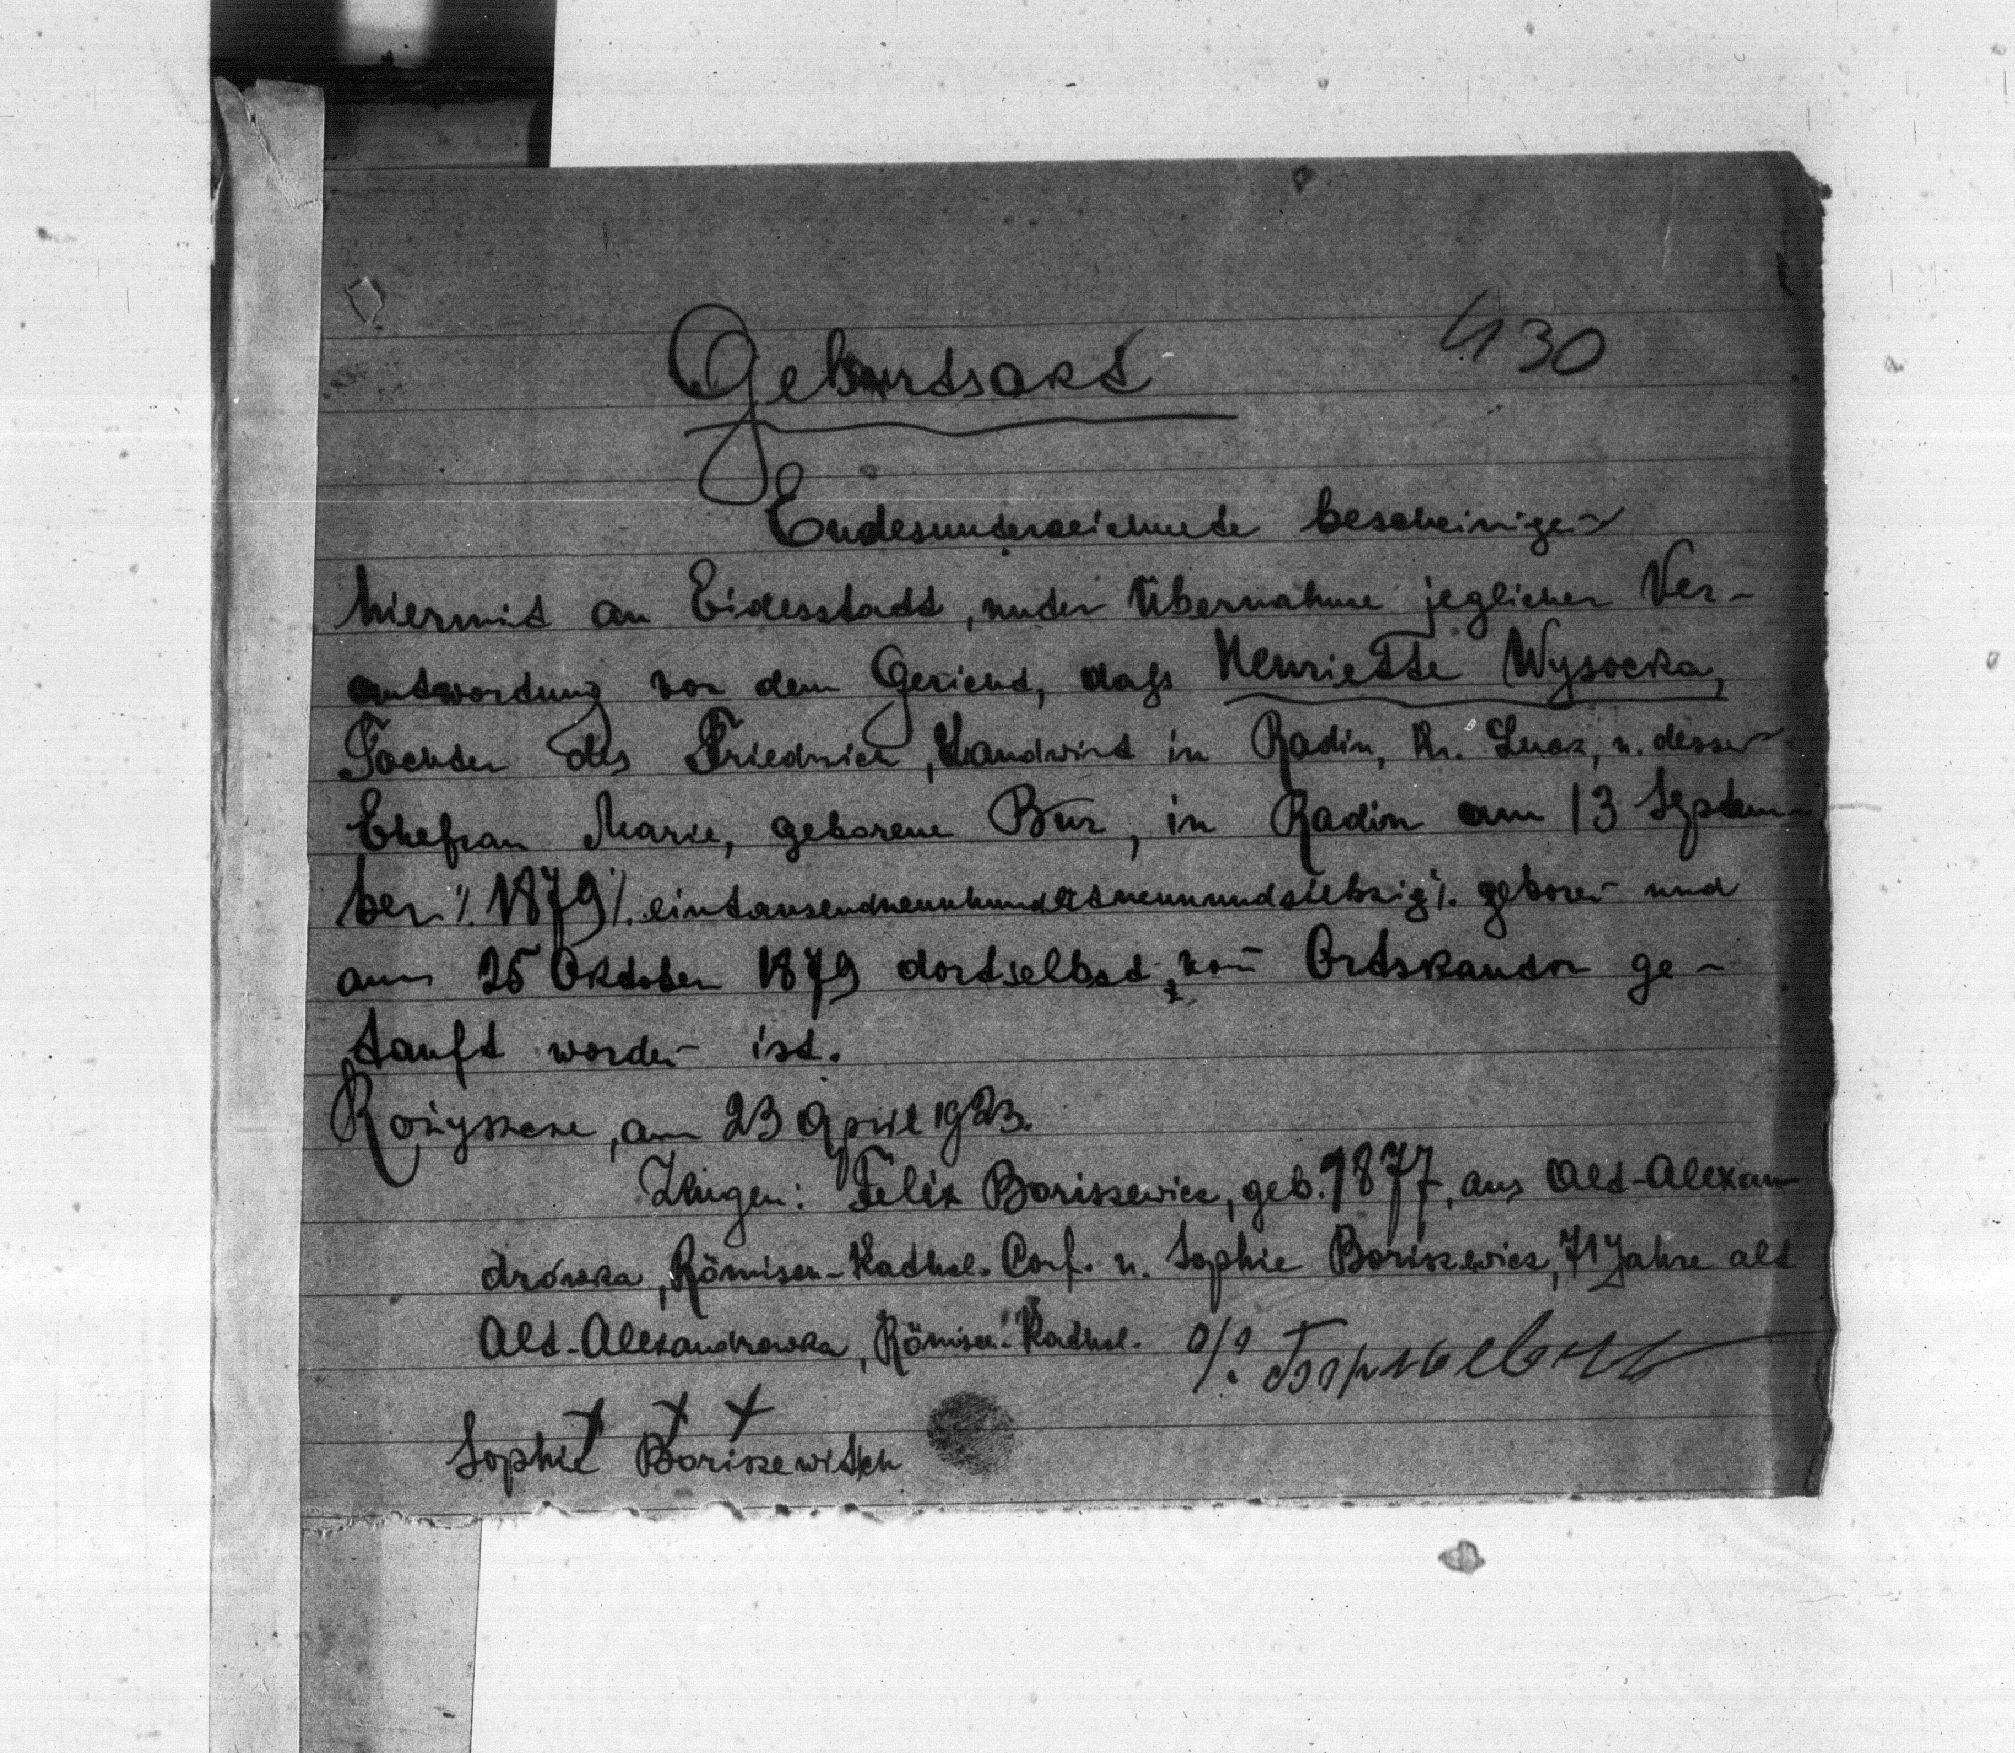 430
Geburtsakt
Endesunterzeichnete bescheinigen
hiermit an Eidesstatt, unter Übernahme jeglicher Ver-
antwortung vor dem Gericht, dass Henriette Wysocka,
Tochter des Friedrich, Landwirt in Radin, Kr. Luck, u. dessen
Ehefrau Marie, geborene Bur, in Radin am 13 Septem-
ber ./. 1879 ./. eintausendneunhundertneunundsiebzig ./. geboren und
am 25 Oktober 1879 dortselbst, vom Ortskantor ge-
tauft worden ist.
Rożyszcze, am 23 April 1923.
Zeugen: Felix Boriszewicz, geb. 1877, aus Alt-Alexan-
drówka, Römisch-Kathol. Conf. u. Sophie Boriszewicz, 71 Jahre alt
Alt-Alexandrowka, Römisch-Kathol.
Sophie Boriszewitsch